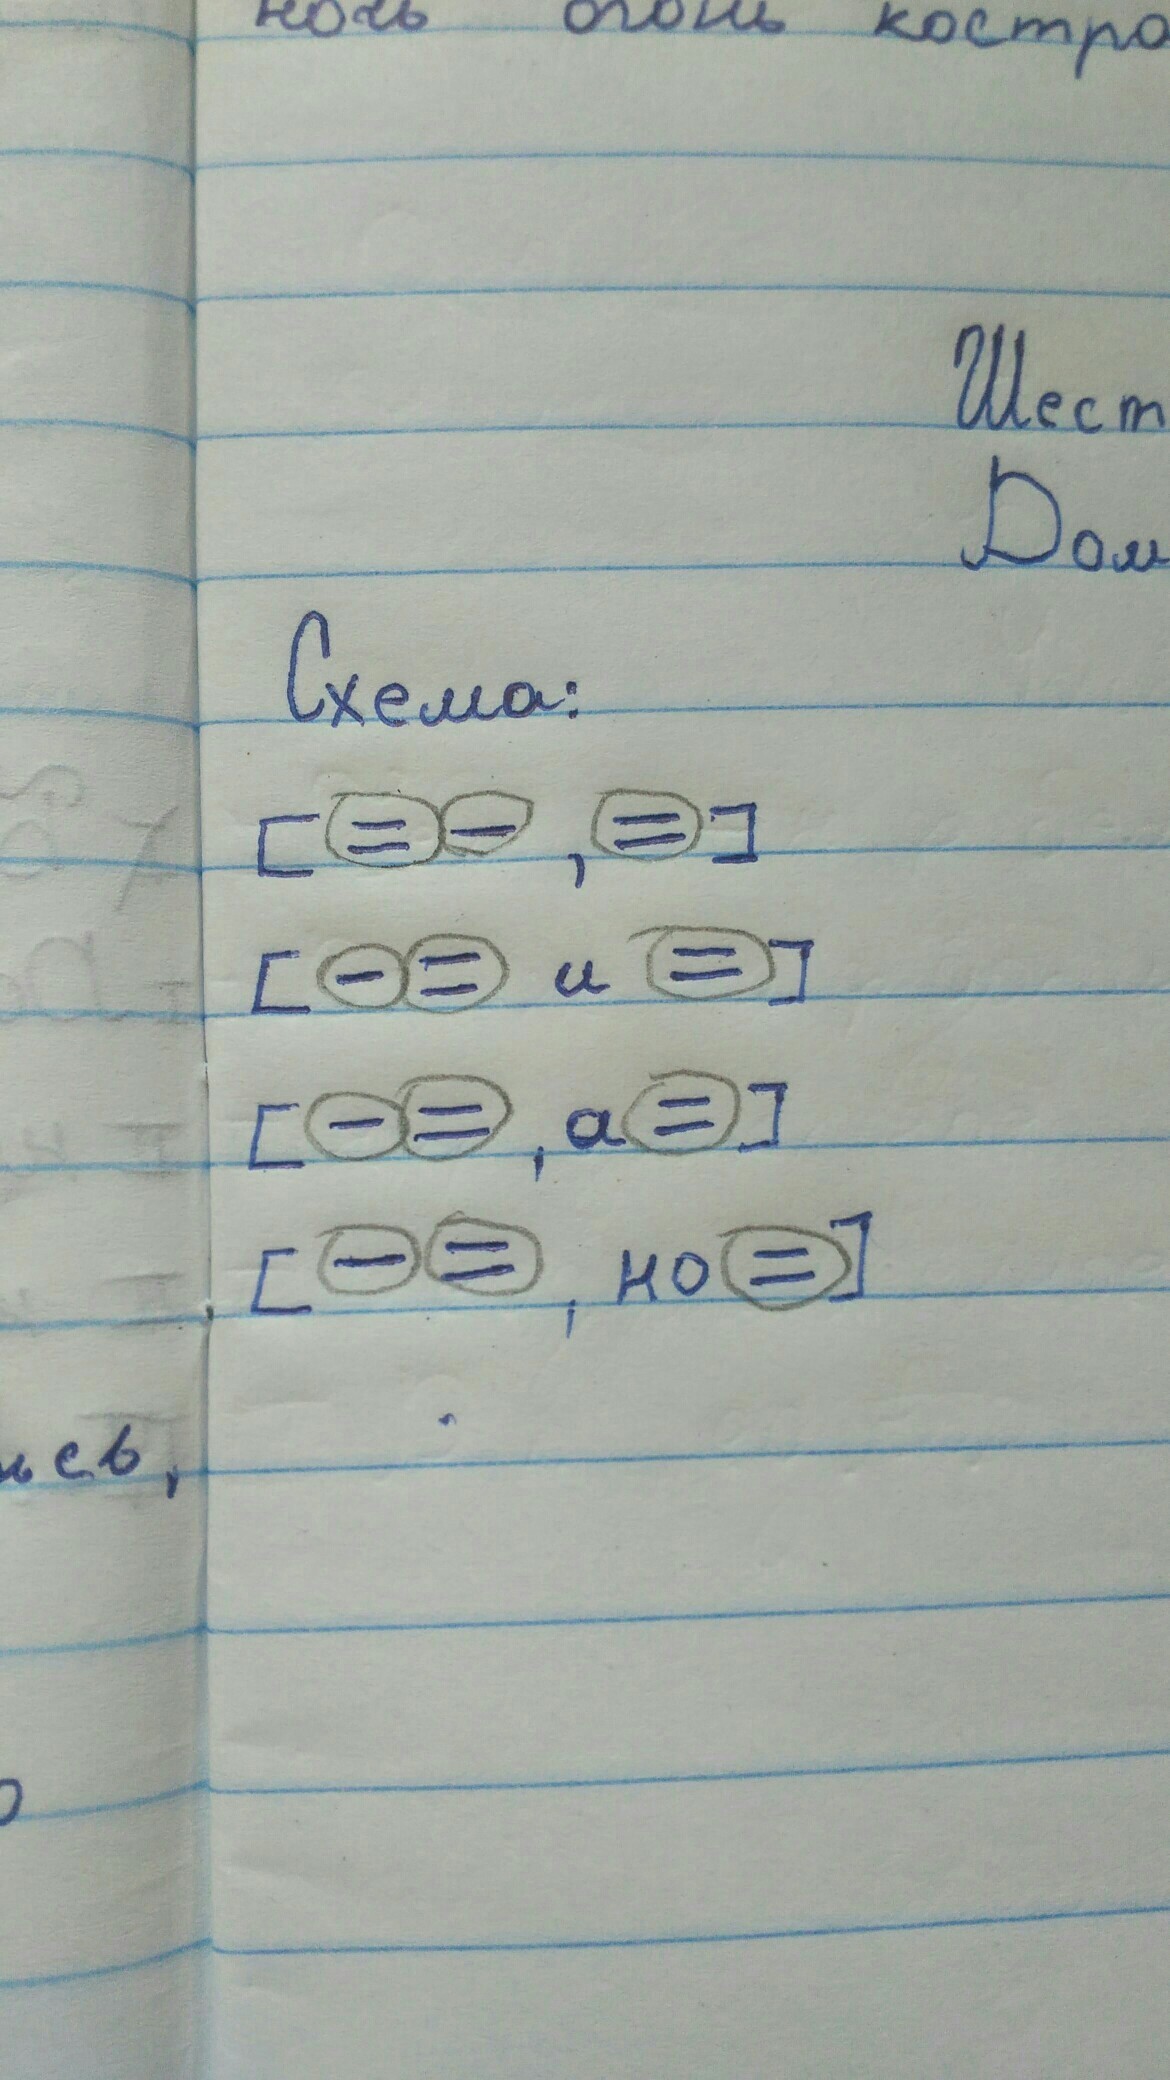 ночь огонь костра
Шест
Дом
Схема:
[= –, =]
[– = и =]
[– =, а =]
[– =, но =]